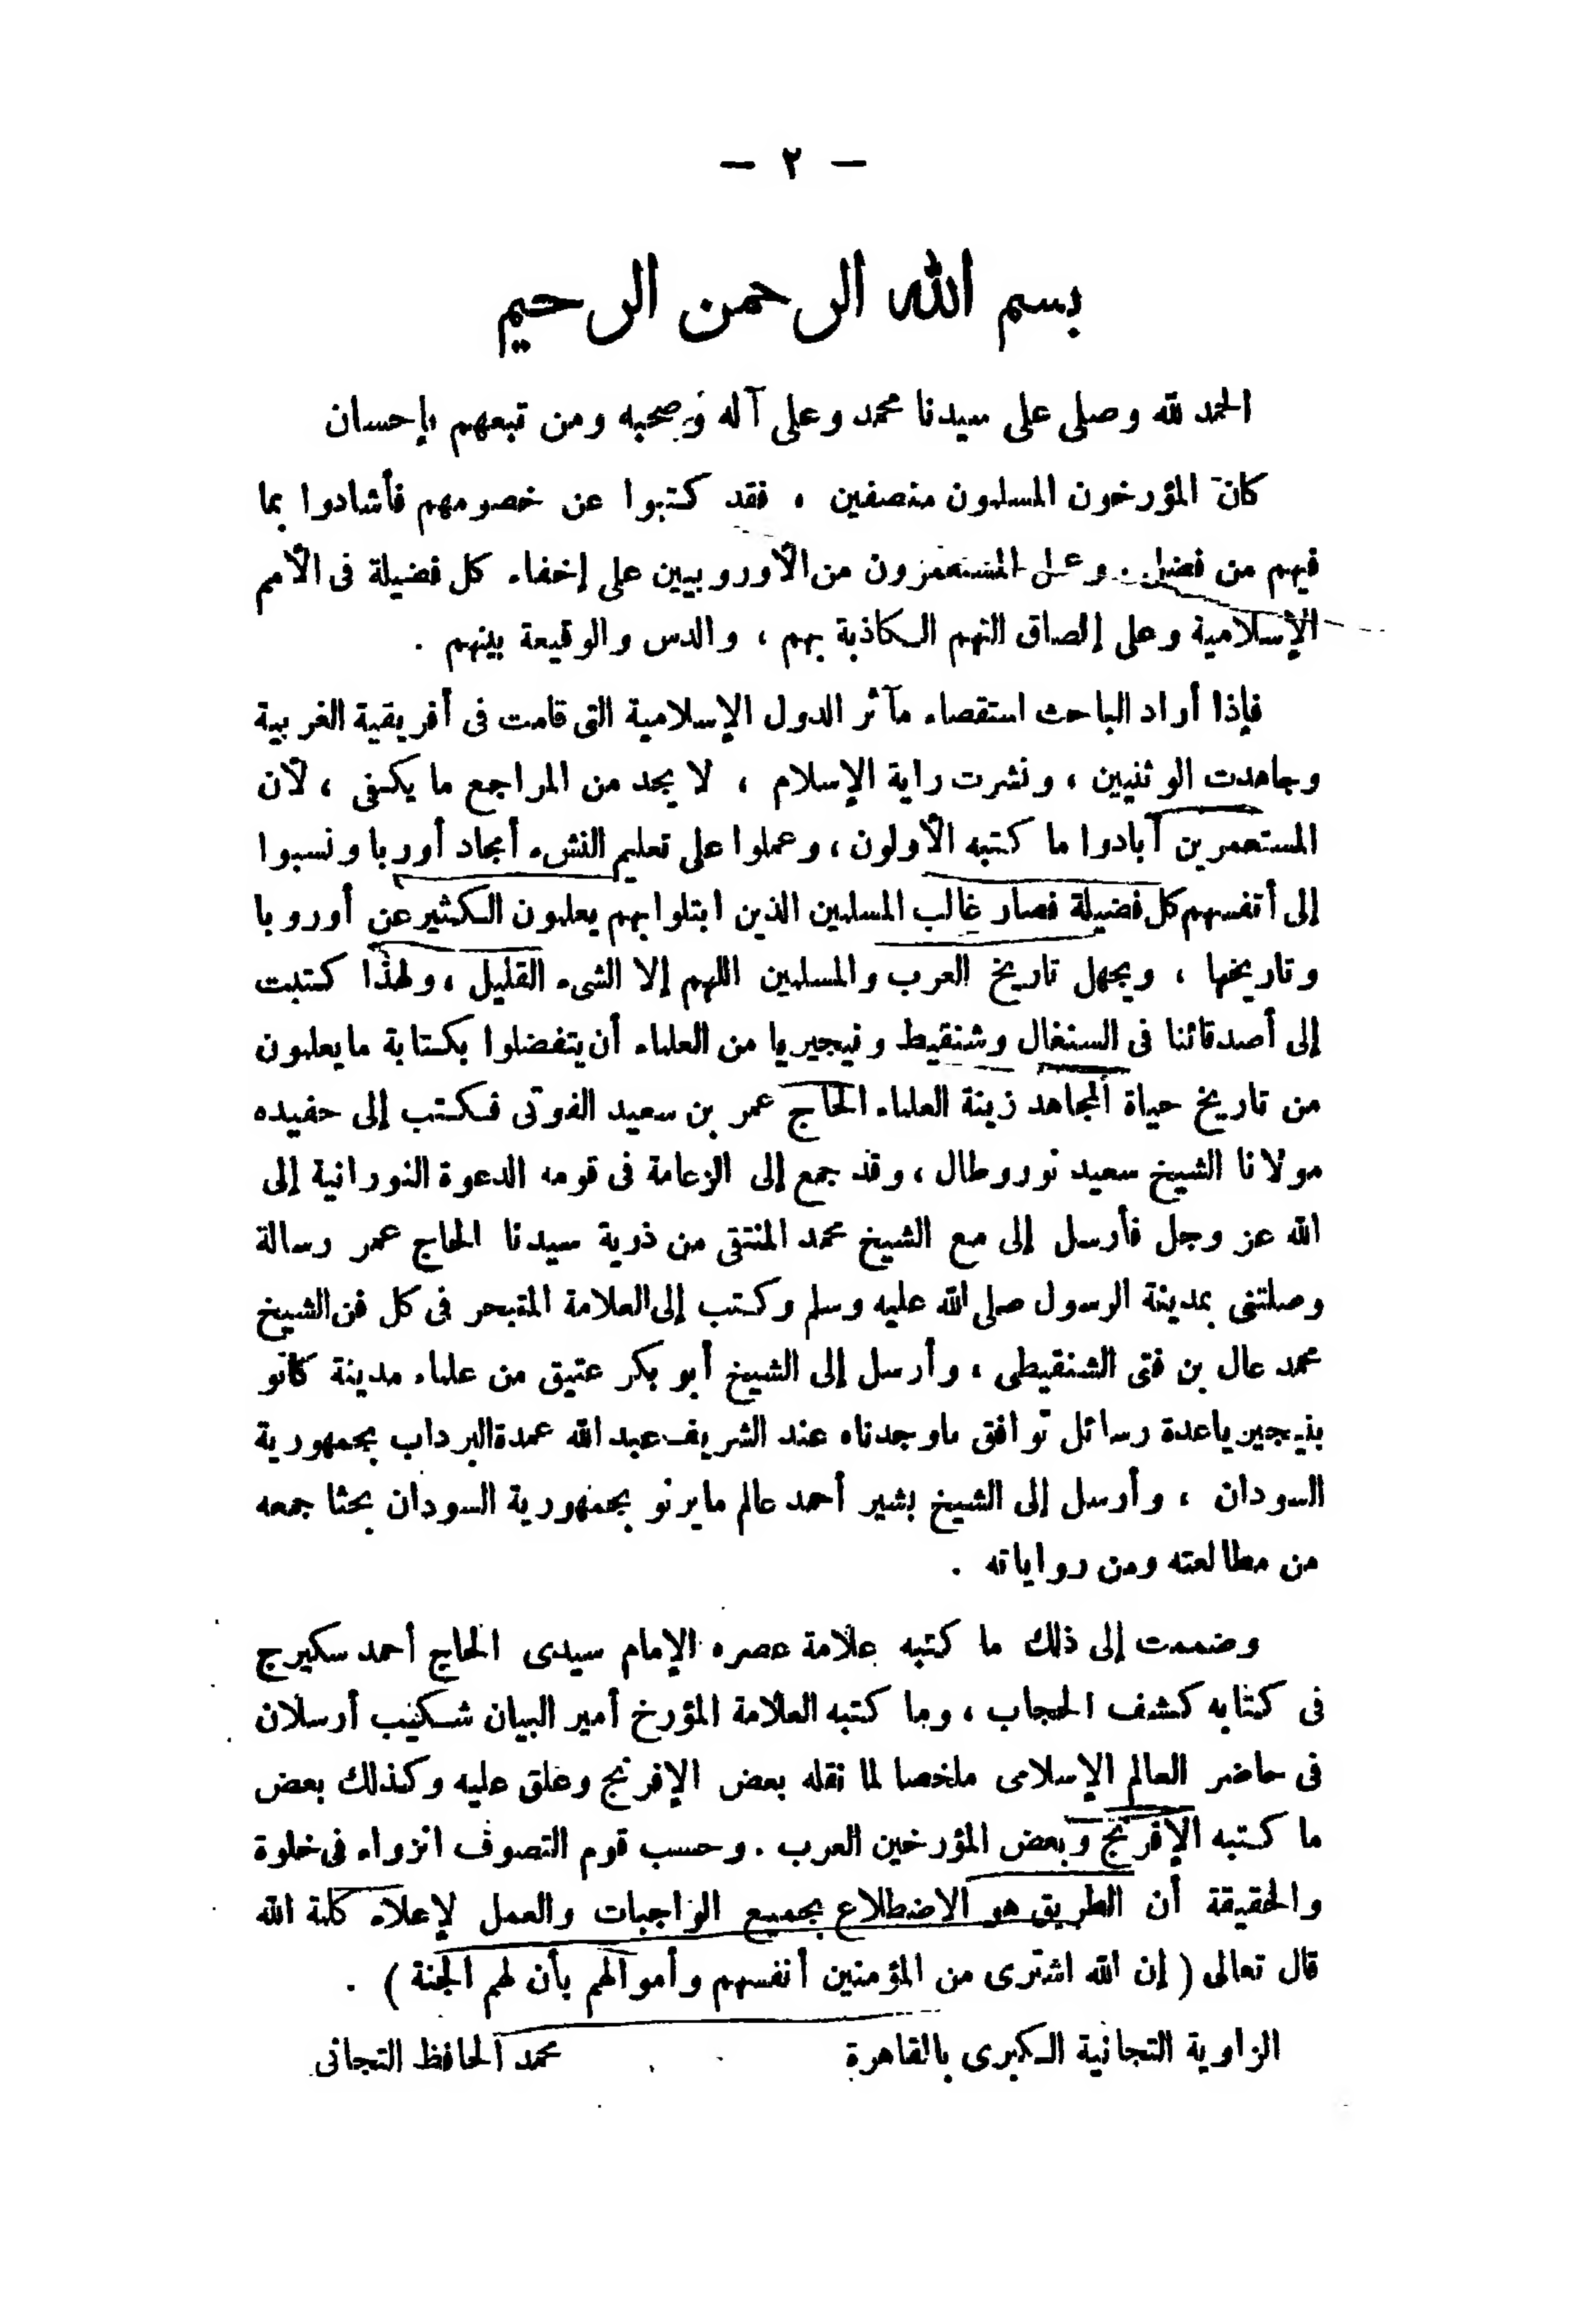 — ٢ —
بسم الله الرحمن الرحيم
الحمد لله وصلى على سيدنا محمد وعلى آله وصحبه ومن تبعهم بإحسان
كان المؤرخون المسلمون منصفين ، فقد كتبوا عن خصومهم فأشادوا بما
فيهم من فضل . وعمل المستعمرون من الأوروبيين على إخفاء كل فضيلة فى الأمم
الإسلامية وعلى إلصاق التهم الكاذبة بهم ، والدس والوقيعة بينهم .
فإذا أراد الباحث استقصاء مآثر الدول الإسلامية التى قامت فى أفريقية الغربية
وجاهدت الوثنيين ، ونشرت راية الإسلام ، لا يجد من المراجع ما يكفى ، لأن
المستعمرين أبادوا ما كتبه الأولون ، وعملوا على تعليم النشء أمجاد أوربا ونسبوا
إلى أنفسهم كل فضيلة فصار غالب المسلمين الذين ابتلوا بهم يعلمون الكثير عن أوروبا
وتاريخها ، ويجهل تاريخ العرب والمسلمين اللهم إلا الشىء القليل ، ولهذا كتبت
إلى أصدقائنا فى السنغال وشنقيط ونيجيريا من العلماء أن يتفضلوا بكتابة ما يعلمون
من تاريخ حياة المجاهد زينة العلماء الحاج عمر بن سعيد الفوتى فكتب إلى حفيده
مولانا الشيخ سعيد نورو طال ، وقد جمع إلى الزعامة فى قومه الدعوة النورانية إلى
الله عز وجل فأرسل إلى مع الشيخ محمد المنتقى من ذرية سيدنا الحاج عمر رسالة
وصلتنى بمدينة الرسول صلى الله عليه وسلم وكتب إلى العلامة المتبحر فى كل فن الشيخ
محمد عال بن فتى الشنقيطى ، وأرسل إلى الشيخ أبو بكر عتيق من علماء مدينة كانو
بنيجيريا عدة رسائل توافق ماوجدناه عند الشريف عبد الله عمدة البرداب بجمهورية
السودان ، وأرسل إلى الشيخ بشير أحمد عالم مايرنو بجمهورية السودان بحثا جمعه
من مطالعته ومن رواياته .
وضممت إلى ذلك ما كتبه علامة عصره الإمام سيدى الحاج أحمد سكيرج
فى كتابه كشف الحجاب ، وما كتبه العلامة المؤرخ أمير البيان شكيب أرسلان
فى حاضر العالم الإسلامى ملخصا لما نقله بعض الإفرنج وعلق عليه وكذلك بعض
ما كتبه الإفرنج وبعض المؤرخين العرب . وحسب قوم التصوف انزواء فى خلوة
والحقيقة أن الطريق هو الاضطلاع بجميع الواجبات والعمل لإعلاء كلمة الله
قال تعالى ( إن الله اشترى من المؤمنين أنفسهم وأموالهم بأن لهم الجنة ) .
الزاوية التجانية الكبرى بالقاهرة محمد الحافظ التجانى